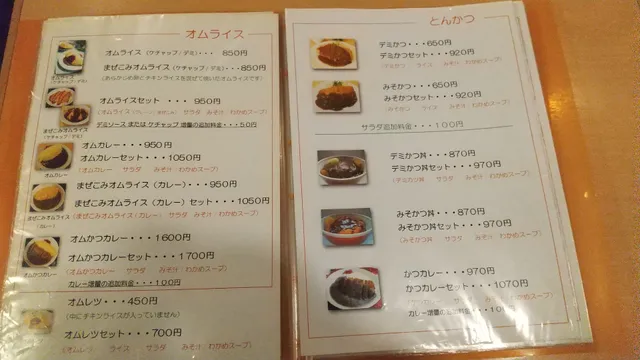 オムライス
オムライス（ケチャップ/デミ）・・・ 850円
まぜこみオムライス（ケチャップ/デミ）・・・850円
（あらかじめ卵とチキンライスを混ぜて焼いたオムライスです）
オムライス
（ケチャップ/デミ）
オムライスセット ・・・ 950円
（オムライス サラダ みそ汁 わかめスープ）
デミソース または ケチャップ 増量の追加料金・・・50円
まぜこみオムライス
（ケチャップ/デミ）
オムカレー・・・950円
オムカレーセット・・・1050円
（オムカレー サラダ みそ汁 わかめスープ）
オムカレー
まぜこみオムライス（カレー）・・・950円
まぜこみオムライス（カレー）セット・・・1050円
（まぜこみオムライス（カレー） サラダ みそ汁/わかめスープ）
まぜこみオムライス
（カレー）
オムかつカレー・・・1600円
オムかつカレーセット・・・1700円
（オムかつカレー サラダ みそ汁 わかめスープ）
カレー増量の追加料金・・・100円
オムかつカレー
オムレツ・・・450円
（中にチキンライスが入っていません）
オムレツセット・・・700円
（オムレツ ライス サラダ みそ汁 わかめスープ）
とんかつ
デミかつ・・・650円
デミかつセット・・・920円
（デミかつ ライス みそ汁 わかめスープ）
みそかつ・・・650円
みそかつセット・・・920円
（みそかつ ライス みそ汁 わかめスープ）
サラダ追加料金・・・100円
デミかつ丼・・・870円
デミかつ丼セット・・・970円
（デミカツ丼 サラダ みそ汁 わかめスープ）
みそかつ丼・・・870円
みそかつ丼セット・・・970円
（みそかつ丼 サラダ みそ汁 わかめスープ）
かつカレー・・・970円
かつカレーセット・・・1070円
（かつカレー サラダ みそ汁 わかめスープ）
カレー増量の追加料金・・・100円